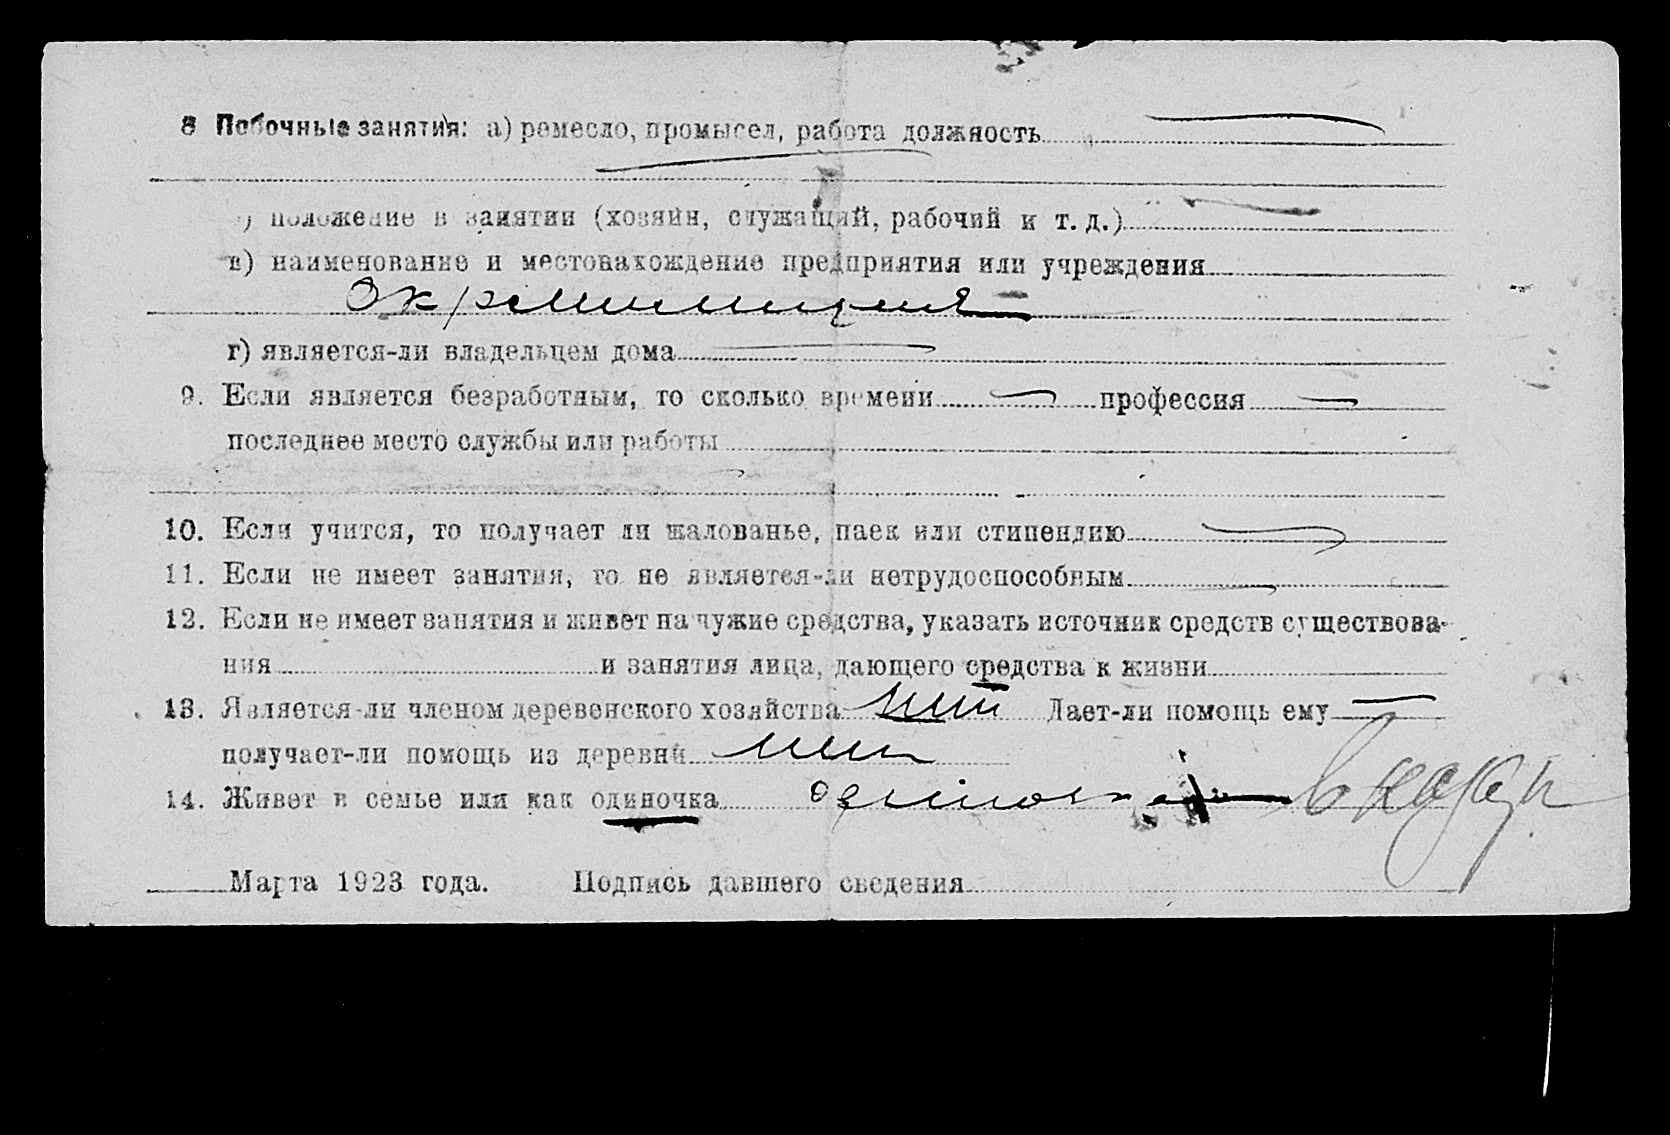 8 Побочные занятия: а) ремесло, промысел, работа должность
) положение в занятии (хозяин, служащий, рабочий и т. д.)
в) наименование и местонахождение предприятия или учреждения
Окрмилиция
г) является-ли владельцем дома
9. Если является безработным, то сколько времени профессия
последнее место службы или работы
10. Если учится, то получает ли жалованье, паек или стипендию
11. Если не имеет занятия, то не является-ли нетрудоспособным
12. Если не имеет занятия и живет на чужие средства, указать источник средств существова-
ния и занятия лица, дающего средства к жизни
13. Является-ли членом деревенского хозяйства нет Дает-ли помощь ему
получает-ли помощь из деревни нет
14. Живет в семье или как одиночка одиночка
Марта 1923 года. Подпись давшего сведения